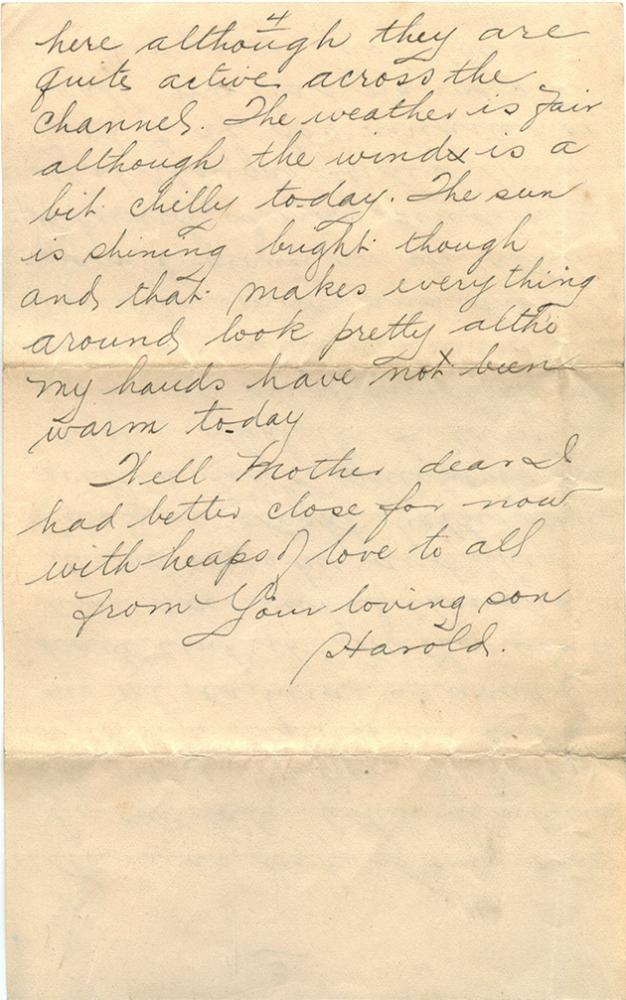 4
here although they are
quite active across the
channel. The weather is fair
although the wind is a
bit chilly today. The sun
is shining bright though
and that makes everything
around look pretty altho
my hands have not been
warm today
Well Mother dear I
had better close for now
with heaps of love to all
From Your loving son
Harold.